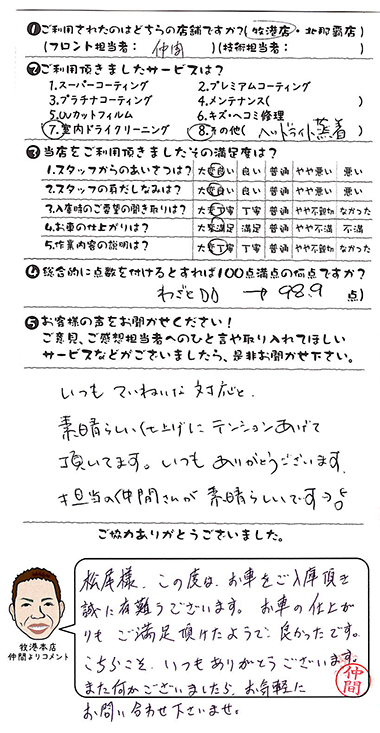 ❶ご利用されたのはどちらの店舗ですか?(牧港店・北那覇店)
(フロント担当者: 仲間 )(技術担当者: )
❷ご利用頂きましたサービスは?
1.スーパーコーティング 2.プレミアムコーティング
3.プラチナコーティング 4.メンテナンス( )
5.UVカットフィルム 6.キズ・ヘコミ修理
7.室内ドライクリーニング 8.その他(ヘッドライト蒸着)
❸当店をご利用頂きましたその満足度は?
1.スタッフからのあいさつは? 大変良い 良い 普通 やや悪い 悪い
2.スタッフの身だしなみは? 大変良い 良い 普通 やや悪い 悪い
3.入庫時のご要望の聞き取りは? 大変丁寧 丁寧 普通 やや不親切 なかった
4.お車の仕上がりは? 大変満足 満足 普通 やや不満 不満
5.作業内容の説明は? 大変丁寧 丁寧 普通 やや不親切 なかった
❹総合的に点数を付けるとすれば100点満点の何点ですか?
わざと → 98.9 点)
❺お客様の声をお聞かせください!
ご意見、ご感想担当者へのひと言や取り入れてほしい
サービスなどがございましたら、是非お聞かせ下さい。
いつも ていねいな 対応と、
素晴らしい仕上げに テンションあげて
頂いてます。いつも ありがとうございます。
担当の仲間さんが 素晴らしいです
ご協力ありがとうございました。
松尾様、この度は、お車をご入庫頂き
誠に有難うございます。お車の仕上が
りも ご満足頂けたようで、良かったです。
こちらこそ、いつもありがとうございます。
また何かございましたら、お気軽に
お問い合わせ下さいませ。
仲間
牧港本店
仲間よりコメント